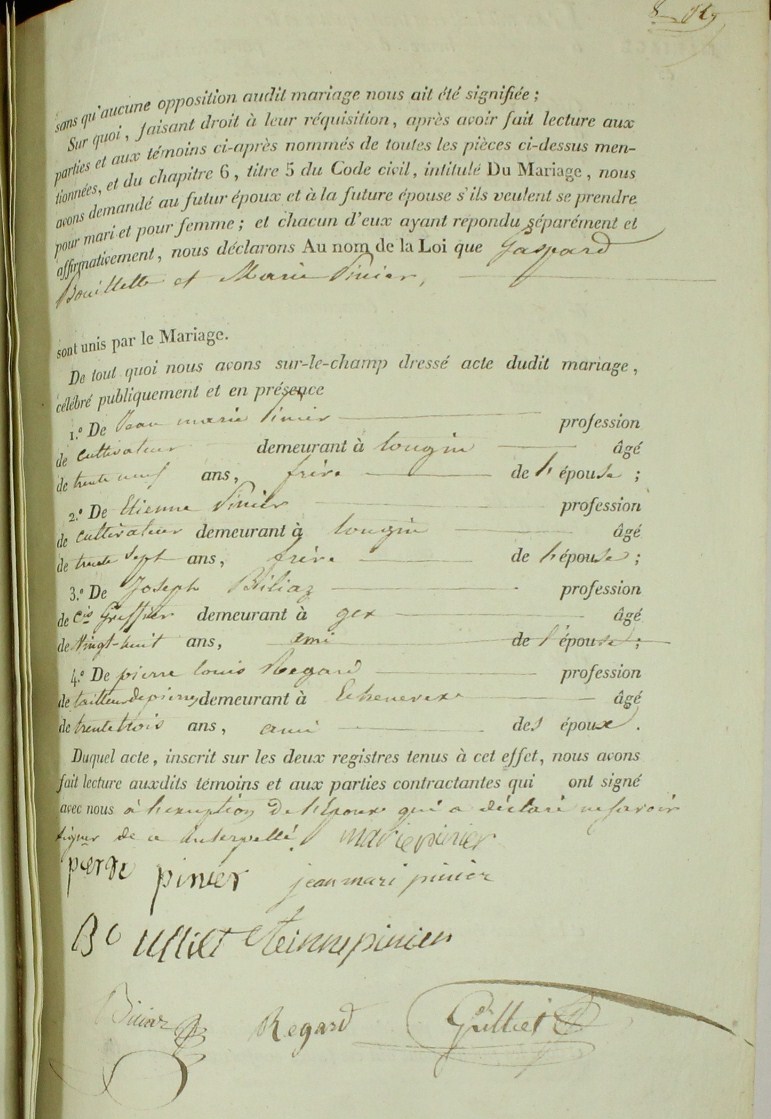 8
sans qu'aucune opposition audit mariage nous ait été signifiée ;
Sur quoi, faisant droit à leur réquisition, après avoir fait lecture aux
parties et aux témoins ci-après nommés de toutes les pièces ci-dessus men-
tionnées, et du chapitre 6, titre 5 du Code civil, intitulé Du Mariage, nous
avons demandé au futur époux et à la future épouse s'ils veulent se prendre
pour mari et pour femme ; et chacun d'eux ayant repondu séparément et
affirmativement, nous déclarons Au nom de la Loi que Gaspard
Bouillette et Marie Pinier,
sont unis par le Mariage.
De tout quoi nous avons sur-le-champ dressé acte dudit mariage,
célébré publiquement et en présence
1.º De Jean marie Pinier profession
de cultivateur demeurant à lougin âgé
de trente neuf ans, frère de l'épouse ;
2.º De Etienne Pinier profession
de cultivateur demeurant à lougin âgé
de trente sept ans, frère de l'épouse ;
3.º De Joseph profession
de cis Greffier demeurant à gex âgé
de vingt-huit ans, ami de l'épouse ;
4.º De pierre louis Regard profession
de tailleur de pierres demeurant à Echenevex âgé
de trente trois ans, ami des époux.
Duquel acte, inscrit sur les deux registres tenus à cet effet, nous avons
fait lecture auxdits témoins et aux parties contractantes qui ont signé
avec nous à l'exception de l'époux qui a déclaré ne savoir
signer de ce interpellé. marie pinier
pierre pinier jean mari pinier
Etienne pinier
Regard